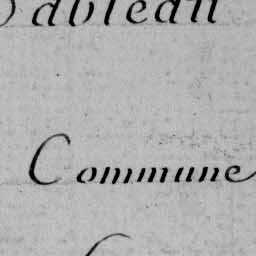 Tableau
Commune